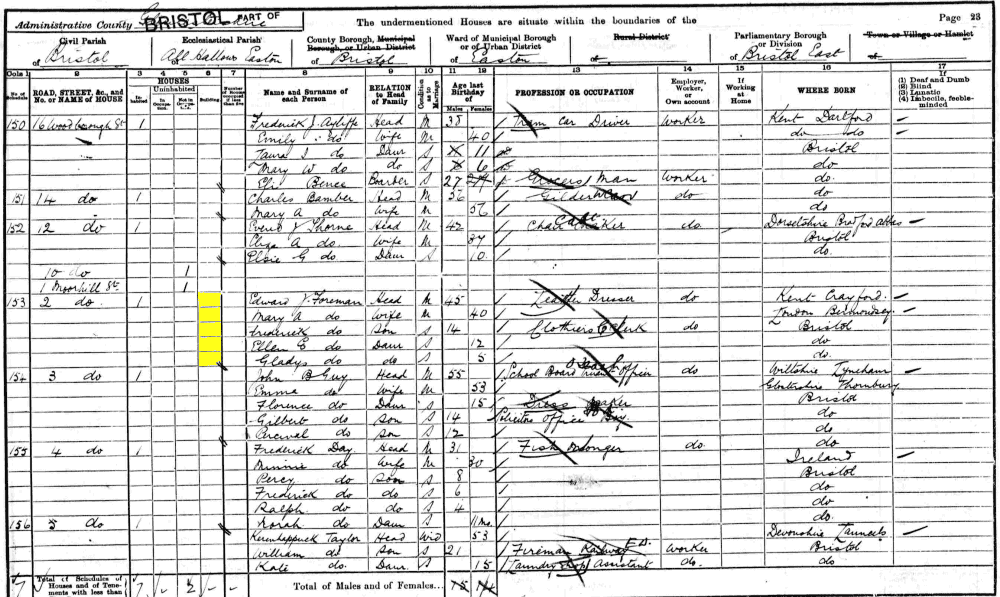 Administrative County BRISTOL PART OF The undermentioned Houses are situate within the boundaries of the Page 23
Civil Parish Ecclesiastical Parish County Borough, Municipal Borough, or Urban District Ward of Municipal Borough or of Urban District Rural District Parliamentary Borough or Division Town or Village or Hamlet
of Bristol of All Hallows Easton of Bristol of Easton of of Bristol East of
Cols 1 2 3 4 5 6 7 8 9 10 11 12 13 14 15 16 17
No. of Schedule ROAD, STREET, &c., and No. or NAME of HOUSE HOUSES Inhabited Uninhabited In Occupation Not in Occupation Building Number of Rooms occupied if less than five Name and Surname of each Person RELATION to Head of Family Condition as to Marriage Age last Birthday of Males Females PROFESSION OR OCCUPATION Employer, Worker, or Own account If Working at Home WHERE BORN If (1) Deaf and Dumb (2) Blind (3) Lunatic (4) Imbecile, feeble-minded
150 16 Woodborough St 1 Frederick J. Ayliffe Head M 38 Tram Car Driver Worker Kent Dartford
Emily do Wife M 40 do do
Laura J do Daur S 11 Bristol
Mary W do do S 6 do
Eli Bence Boarder S 27 Grocers Man Worker do.
151 14 do 1 Charles Bamber Head M 36 Gilder do do
Mary A do Wife M 36 do
152 12 do 1 Head M 42 Chair Maker do. Dorsetshire Bradford Abbas
Eliza A do. Wife M 37 Bristol
Elsie G do Daur S 10 do.
10 do 1
1 Moorhill St. 1
153 2 do. 1 Edward J. Foreman Head M 45 Leather Dresser do Kent Crayford.
Mary A do Wife M 40 London Bermondsey.
Frederick do Son S 14 Clothiers Clerk do Bristol
Ellen E do Daur S 12 do
Gladys do do S 5 do.
154 3 do 1 John B Guy Head M 55 School Board Officer do Wiltshire Lyneham
Emma do Wife M 53 Thornbury
Florence do Daur S 15 Dress Maker Bristol
Gilbert do Son S 14 Solicitors Office Boy do
Percival do Son S 12 do
155 4 do 1 Frederick Day Head M 31 Fishmonger do. do
Minnie do Wife M 30 Ireland
Percy do Son S 8 Bristol
Frederick do do S 6 do
Ralph do do S 4 do
Norah do Daur S 11 Mo. do.
156 5 do 1 Kerenhappuck Taylor Head Wid 53 Devonshire
William do Son S 21 Fireman Railway Worker Bristol
Kate do. Daur S 15 Laundry Shop Assistant do. do
7 Total of Schedules of Houses and of Tenements with less than 7 - 2 - - Total of Males and of Females... 15 14